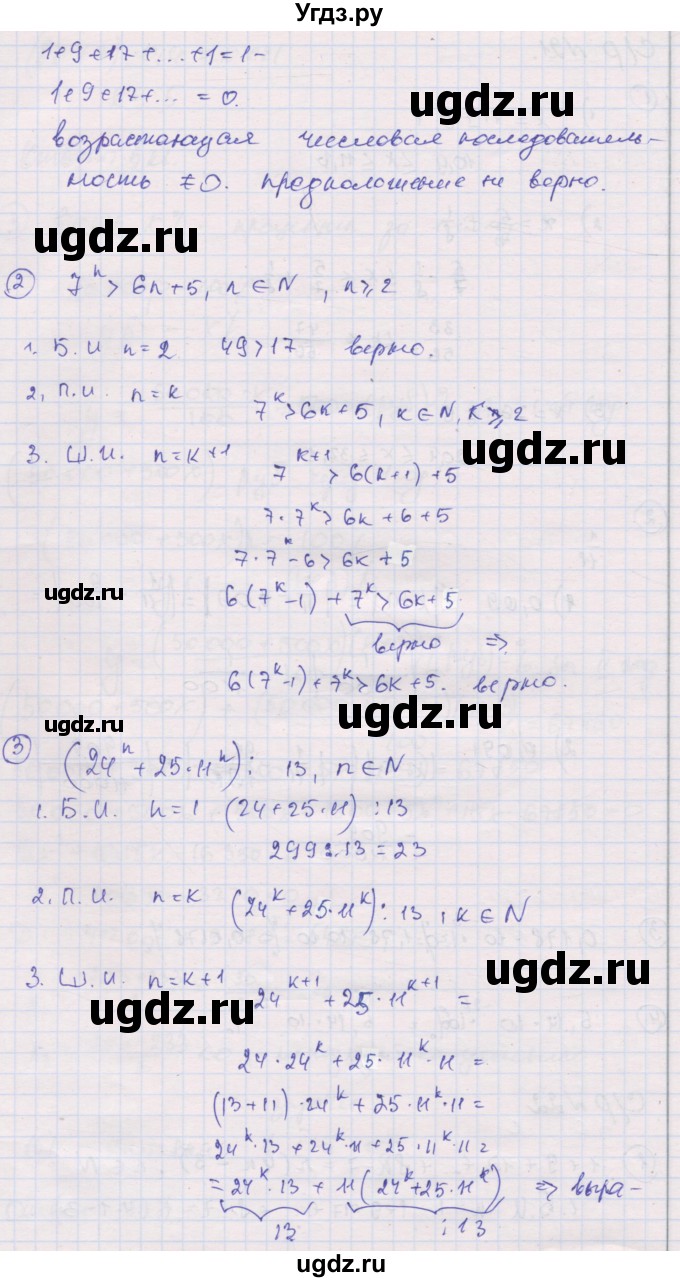 Угдз.ру
1+9+17+...+1=1-
1+9+17+... = 0.
возрастающая числовая последователь-
ность ≠0. предположение не верно.
ugdz.ru
ugdz.ru
② 7ⁿ > 6n+5, n ∈ N, n ⩾ 2
1. Б.И n=2 49>17 верно.
2. П.И. n=k 7ᵏ>6k+5, k ∈ N, k ⩾ 2
3. Ш.И. n=k+1 7ᵏ⁺¹ > 6(k+1)+5
7·7ᵏ > 6k+6+5
7·7ᵏ-6 > 6k+5
ugdz.ru ugdz.ru
6(7ᵏ-1) + 7ᵏ > 6k+5
верно ⇒
6(7ᵏ-1)+7ᵏ > 6k+5. верно.
ugdz.ru ugdz.ru
③ (24ⁿ + 25·11ⁿ) ⋮ 13, n ∈ N
1. Б.И. n=1 (24+25·11) ⋮ 13
299:13=23
2. П.И. n=k (24ᵏ+25·11ᵏ) ⋮ 13, k ∈ N
3. Ш.И. n=k+1 24ᵏ⁺¹ + 25·11ᵏ⁺¹ =
ugdz.ru ugdz.ru
24·24ᵏ + 25·11ᵏ·11 =
(13+11)·24ᵏ + 25·11ᵏ·11 =
24ᵏ·13 + 24ᵏ·11 + 25·11ᵏ·11 =
= 24ᵏ·13 + 11(24ᵏ+25·11ᵏ) ⇒ выра-
13 ⋮13
ugdz.ru ugdz.ru